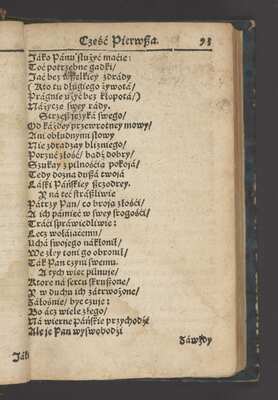 Cześć Pierwsza. 93
Jáko Pánu służyć maćie:
Toć potrzebne gadki/
Jáć bez wszelkiey zdrády
(Kto tu długiego żywotá/
Prágnie użyć bez kłopotá/)
Náżycżę swey rády.
Strzeż języká swego/
Od káżdey przewrotney mowy/
Ani obłudnymi słowy
Nie zdradzay bliźniego/
Porzuć złość/ bądź dobry/
Szukay z pilnośćią pokoiá/
Tedy dozna duszá twoiá
Łáski Páńskiey szczodrey.
Y na teć strászliwie
Pátrzy Pan/ co broią złośći/
A ich pámięć w swey srogośći/
Tráći spráwiedliwie:
Lecz wołáiącemu/
Uchá swoiego nákłonił/
We złym toni go obronił/
Ták Pan cżyni swemu.
A tych wiec pilnuie/
Ktore ná sercu skruszone/
Y w duchu ich zátrwożone/
Żałośnie/ bye cżuie:
Bo ácz wiele złego/
Ná wierne Páńskie przychodźi
Ale ie Pan wyswobodźi
Záwżdy
Ják